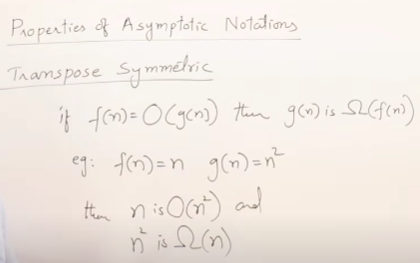 Properties of Asymptotic Notations
Transpose Symmetric
if f(n)=O(g(n)) then g(n) is Ω(f(n))
eg: f(n)=n g(n)=n²
then n is O(n²) and
n² is Ω(n)